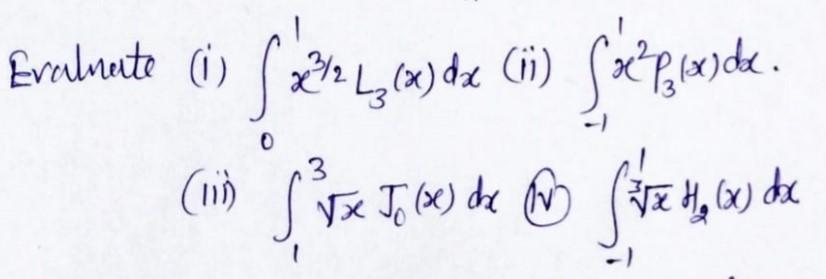 Evaluate (i) ∫₀¹ x^{3/2} L₃(x) dx (ii) ∫₋₁¹ x² P₃(x) dx.
(iii) ∫₁³ √x J₀(x) dx (iv) ∫₋₁¹ ∛x H₂(x) dx